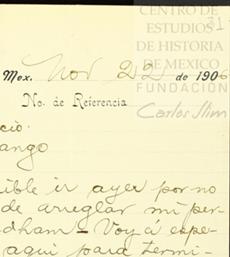 CENTRO DE
ESTUDIOS
DE HISTORIA
DE MEXICO
FUNDACIÓN
Carlos Slim
31
Mex. Nov 22 de 1906
No. de Referencia
cio.
ango
ible ir ayer por no
de arreglar mi per-
dham - Voy á espe-
aqui para termi-